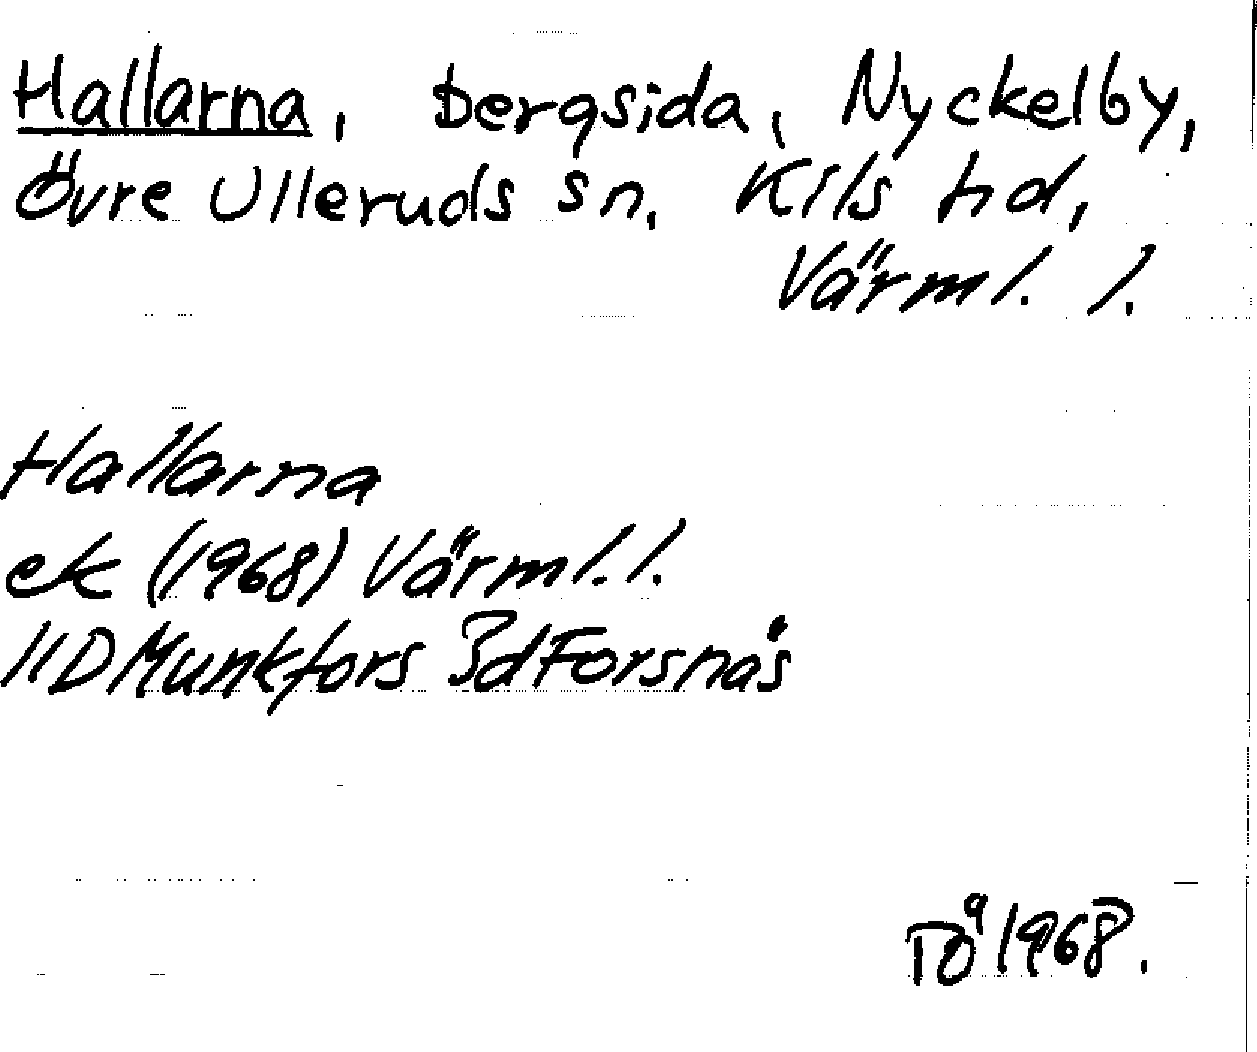 Hallarna, bergsida, Nyckelby,
Övre Ulleruds sn, Kils hd,
Värml. l.
Hallarna
ek (1968) Värml. l.
11D Munkfors 3d Forsnäs
TÅ 1968.